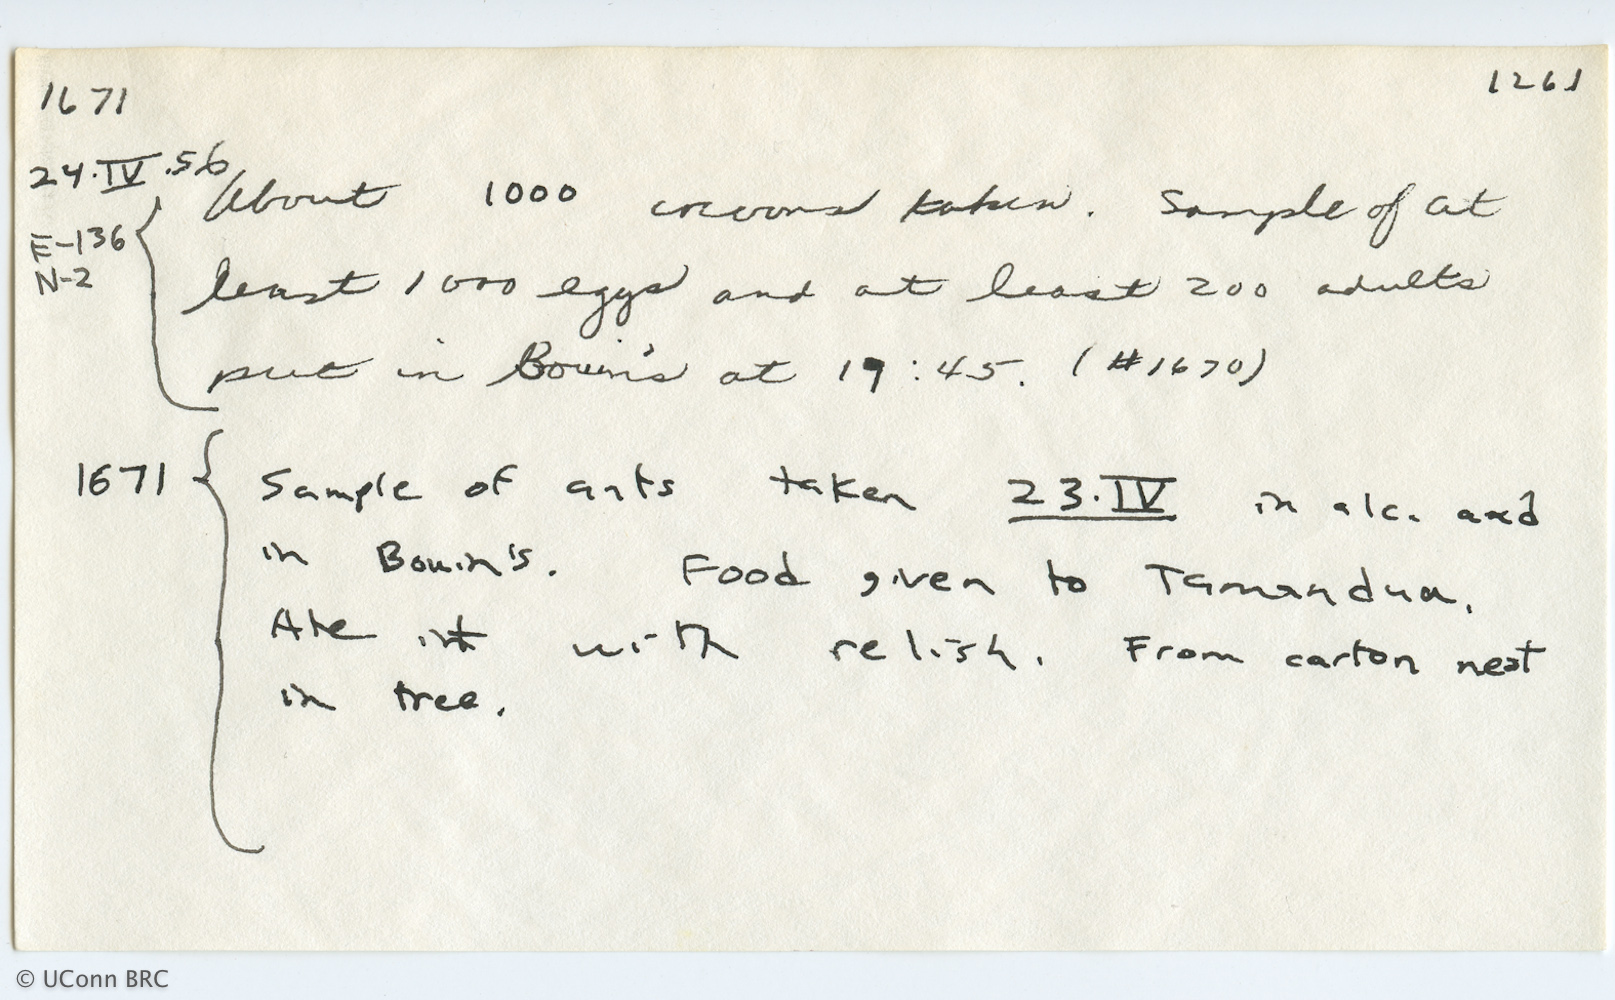 1671
1261
24.IV.56
E-136
N-2
About 1000 cocoons taken. Sample of at
least 1000 eggs and at least 200 adults
put in Bouin's at 19:45. (#1670)
1671
Sample of ants taken 23.IV in alc. and
in Bouin's. Food given to Tamandua.
Ate it with relish. From carton nest
in tree.
© UConn BRC